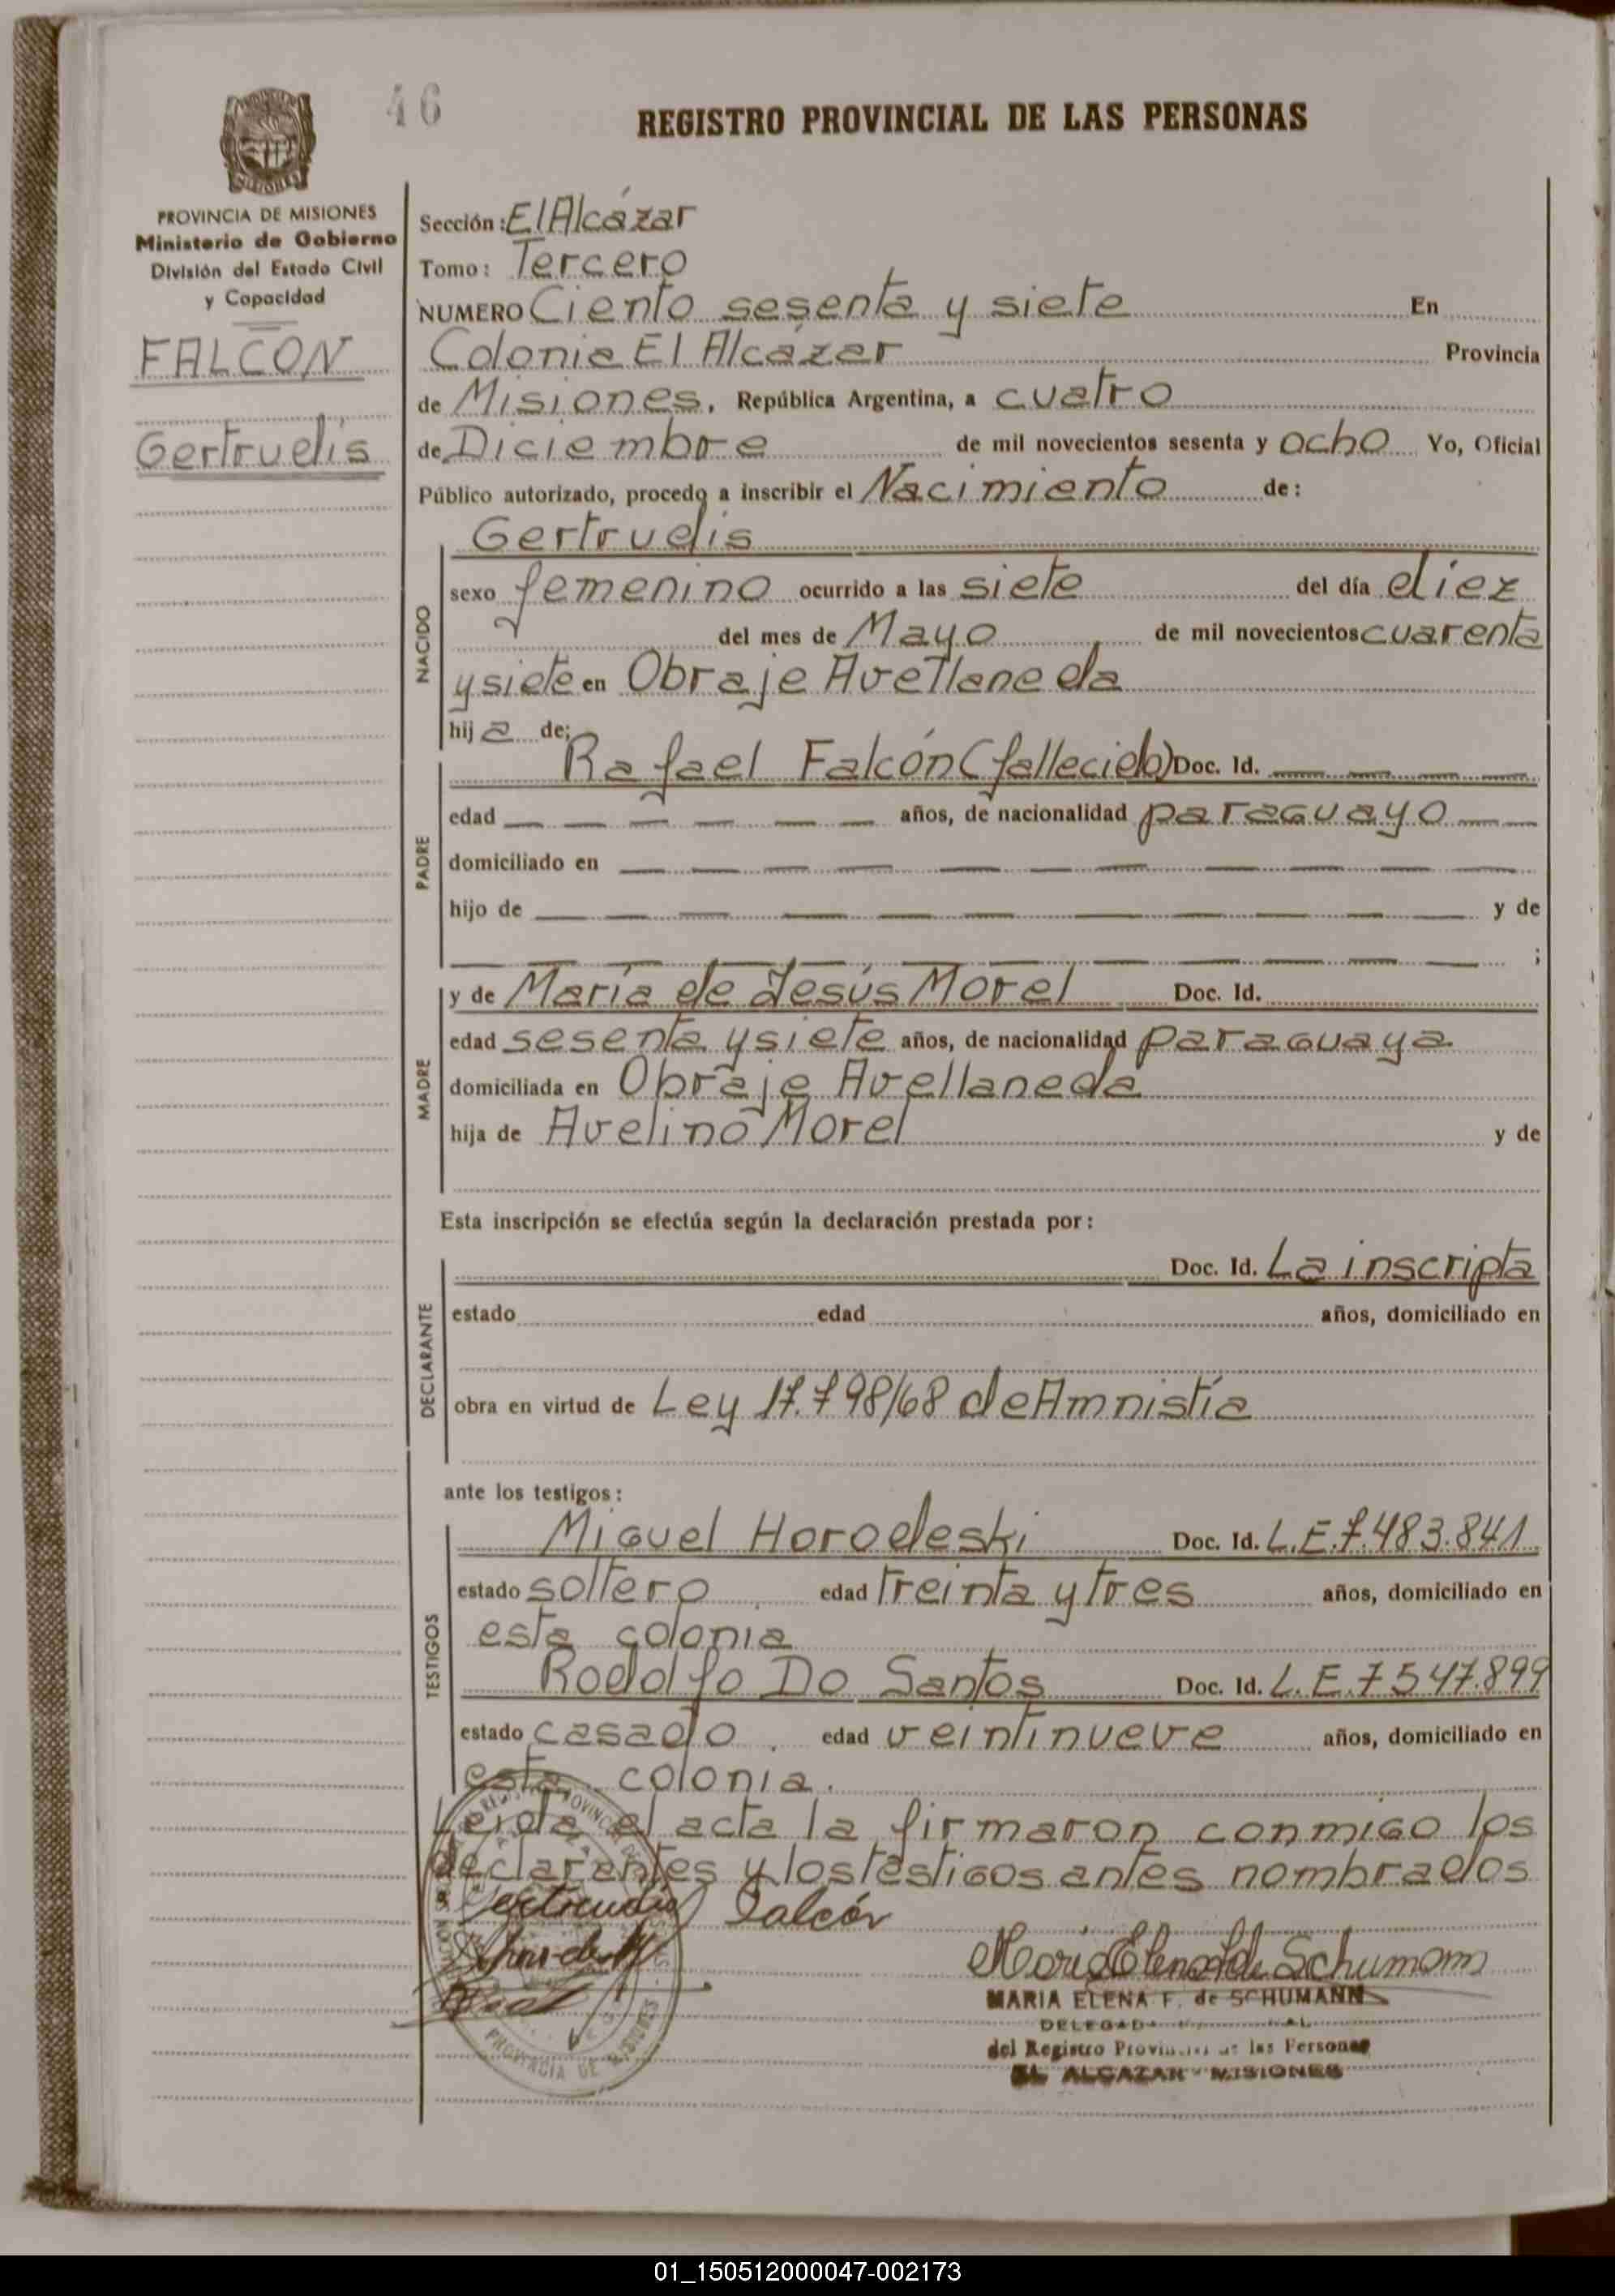 46
REGISTRO PROVINCIAL DE LAS PERSONAS
MISIONES
PROVINCIA DE MISIONES
Ministerio de Gobierno
División del Estado Civil
y Capacidad
FALCON
Gertrudis
Sección: El Alcázar
Tomo: Tercero
NUMERO Ciento sesenta y siete En
Colonia El Alcázar Provincia
de Misiones, República Argentina, a cuatro
de Diciembre de mil novecientos sesenta y ocho Yo, Oficial
Público autorizado, procedo a inscribir el Nacimiento de:
Gertrudis
NACIDO
sexo femenino ocurrido a las siete del día diez
del mes de Mayo de mil novecientos cuarenta
y siete en Obraje Avellaneda
hija de;
PADRE
Rafael Falcón (fallecido) Doc. Id. — — — —
edad — — — — — — años, de nacionalidad paraguayo — —
domiciliado en — — — — — — — — — —
hijo de — — — — — — — — — — y de
— — — — — — — — — — ;
MADRE
y de María de Jesús Morel Doc. Id.
edad sesenta y siete años, de nacionalidad paraguaya
domiciliada en Obraje Avellaneda
hija de Avelino Morel y de
Esta inscripción se efectúa según la declaración prestada por:
DECLARANTE
Doc. Id. La inscripta
estado edad años, domiciliado en
obra en virtud de Ley 17.798/68 de Amnistía
ante los testigos:
TESTIGOS
Miguel Horodeski Doc. Id. L.E.7.483.841
estado soltero. edad treinta y tres años, domiciliado en
esta colonia
Rodolfo Do Santos Doc. Id. L.E.7547.899
estado casado. edad veintinueve años, domiciliado en
esta colonia.
Leída el acta la firmaron conmigo los
declarantes y los testigos antes nombrados
Gertrudis Falcón
Maria Elena F. de Schumann
MARIA ELENA F. de SCHUMANN
del Registro Provincial de las Personas
EL ALCAZAR - MISIONES
PROVINCIA DE MISIONES
01_150512000047-002173